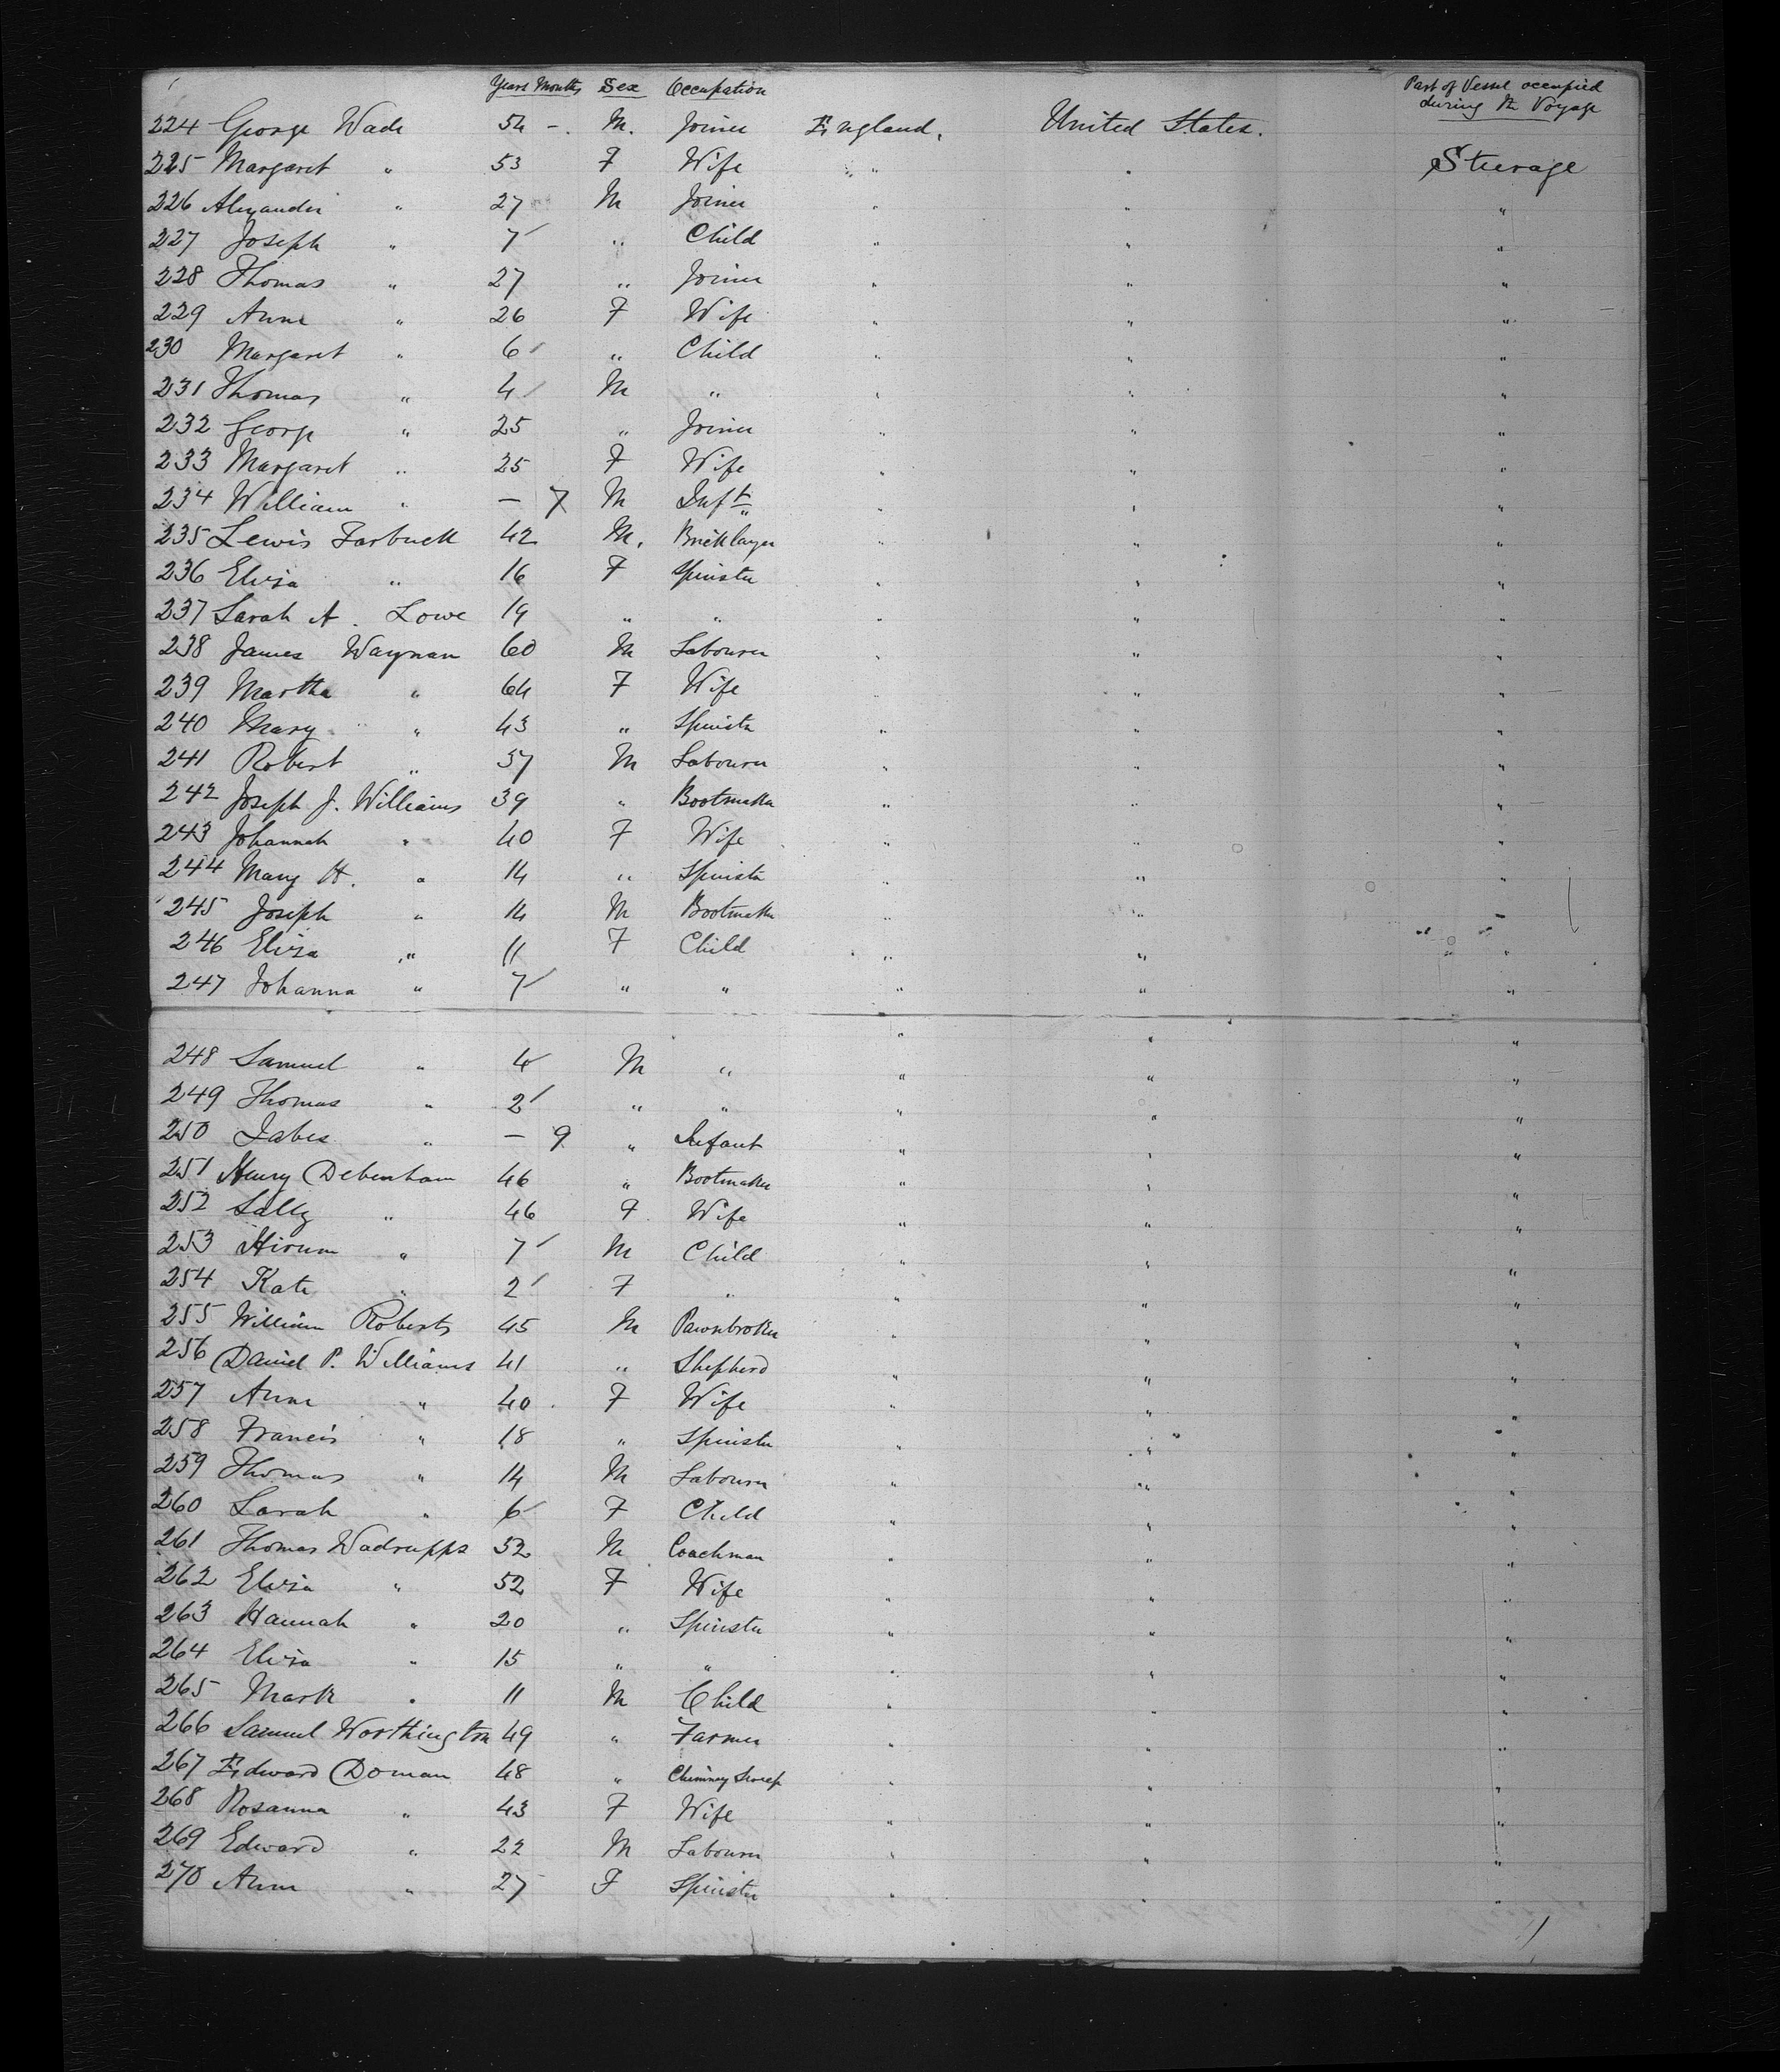 Years Months Sex Occupation Part of Vessel occupied
during the Voyage
224 George Wade 54 - . M. Joiner England. United States.
225 Margaret " 53 F Wife " " Steerage
226 Alexander " 27 M Joiner " " "
227 Joseph " 7 " Child " " "
228 Thomas " 27 " Joiner " " "
229 Anne " 26 F Wife " " "
230 Margaret " 6 " Child " " "
231 Thomas " 4 M " " " "
232 George " 25 " Joiner " " "
233 Margaret " 25 F Wife " " "
234 William " — 7 M Inft " " "
235 Lewis Tarbuck 42 M. Bricklayer " " "
236 Eliza " 16 F Spinster " " "
237 Sarah A. Lowe 19 " " " " "
238 James Waynan 60 M Labourer " " "
239 Martha " 64 F Wife " " "
240 Mary " 43 " Spinster " " "
241 Robert " 37 M Labourer " " "
242 Joseph J. Williams 39 " Bootmaker " " "
243 Johannah " 40 F Wife " " "
244 Mary H. " 14 " Spinster " " "
245 Joseph " 14 M Bootmaker " " "
246 Eliza " 11 F Child " " "
247 Johanna " 7 " " " " "
248 Samuel " 4 M " " " "
249 Thomas " 2 " " " " "
250 Jabes " — 9 " Infant " " "
251 Henry Debenham 46 " Bootmaker " " "
252 Sally " 46 F Wife " " "
253 Hirum " 7 M Child " " "
254 Kate " 2 F " " " "
255 William Roberts 45 M Pawnbroker " " "
256 Daniel P. Williams 41 " Shepherd " " "
257 Anne " 40 F Wife " " "
258 Francis " 18 " Spinster " " "
259 Thomas " 14 M Labourer " " "
260 Sarah " 6 F Child " " "
261 Thomas Wadrupps 52 M Coachman " " "
262 Eliza " 52 F Wife " " "
263 Hannah " 20 " Spinster " " "
264 Eliza " 15 " " " " "
265 Mark " 11 M Child " " "
266 Samuel Worthington 49 " Farmer " " "
267 Edward Doman 48 " Chimney Sweep " " "
268 Rosanna " 43 F Wife " " "
269 Edward " 22 M Labourer " " "
270 Anne " 27 F Spinster " " "